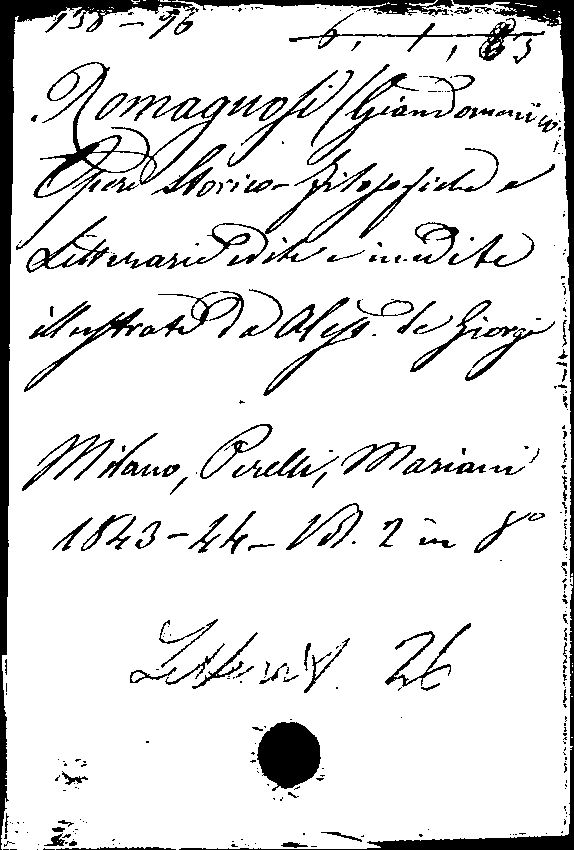 138-96 6, 1, 83
Romagnosi (Giandomenico)
Opere Storico-filosofiche e
Letterarie edite e inedite
illustrate da Aless. de Giorgi
Milano, Perelli, Mariani
1843-44_ Vol. 2 in 8º
26